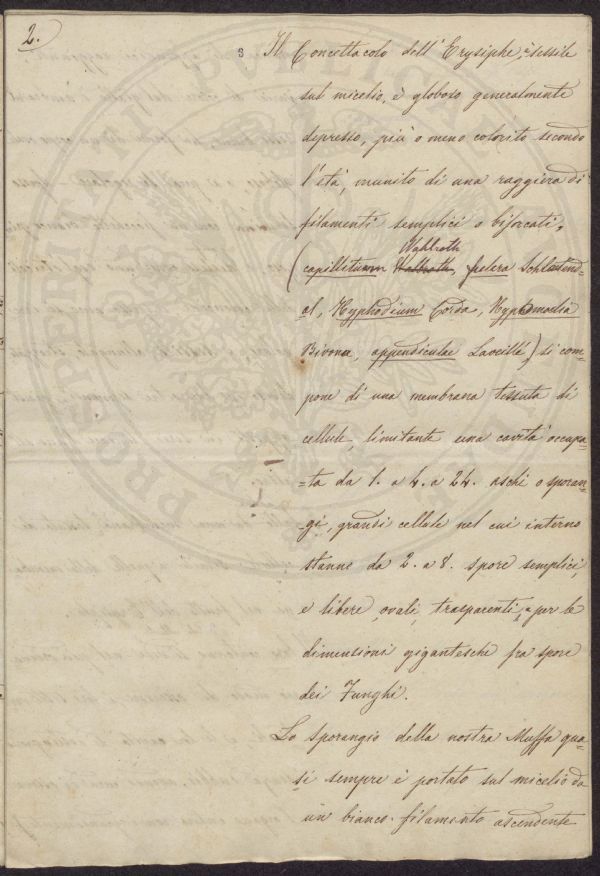 2.
3
Il Concettacolo dell'Erysiphe, è sessile
sul micelio, è globoso generalmente
depresso, più o meno colorito secondo
l'età, munito di una raggiera di
filamenti semplici o biforcati,
Wahlroth
(capillitum Walroth, fulcra Schlectend-
al, Hyphodium Corda, Hyphomastia
Bivona, appendiculae Laveillé) si com-
pone di una membrana tessuta di
cellule, limitante una cavità occupa-
=ta da 1. a 4. a 24. aschi o sporan-
gi, grandi cellule nel cui interno
stanno da 2. a 8. spore semplici,
e libere, ovali, trasparenti, e per le
dimensioni gigantesche fra spore
dei Funghi.
Lo sporangio della nostra Muffa qua-
si sempre è portato sul micelio da
un bianco filamento ascendente
PROSPERITATI PUBLICAE